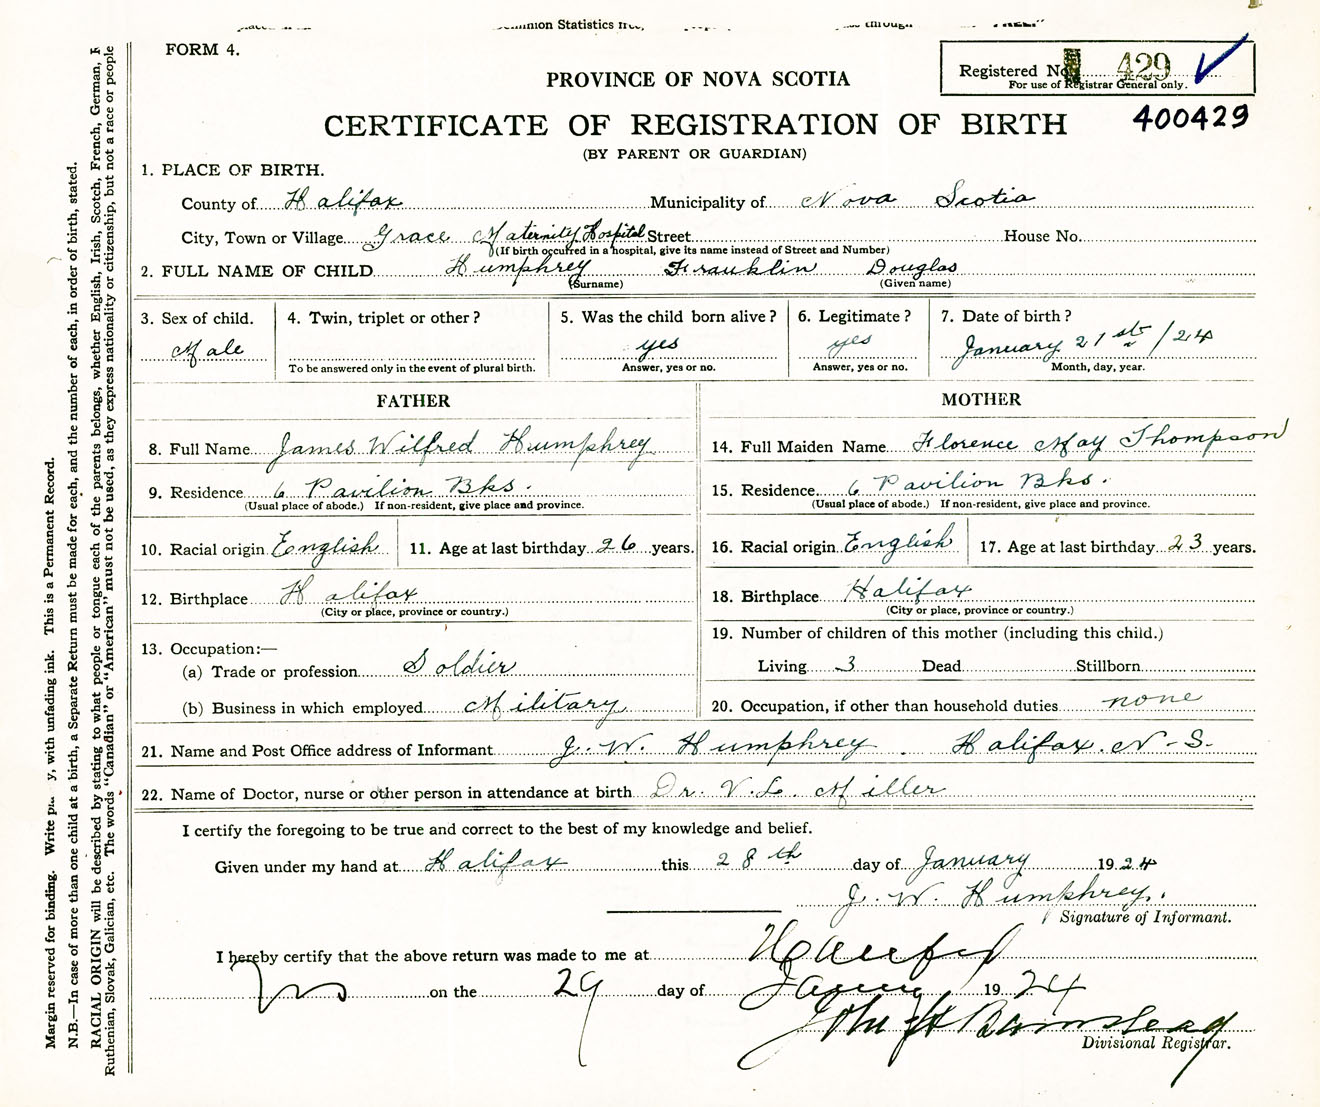 minion Statistics free,
through
FORM 4.
Registered No. 429
For use of Registrar General only.
PROVINCE OF NOVA SCOTIA
400429
CERTIFICATE OF REGISTRATION OF BIRTH
(BY PARENT OR GUARDIAN)
1. PLACE OF BIRTH.
County of Halifax Municipality of Nova Scotia
City, Town or Village Grace Maternity Hospital Street House No.
(If birth occurred in a hospital, give its name instead of Street and Number)
2. FULL NAME OF CHILD Humphrey Franklin Douglas
(Surname) (Given name)
3. Sex of child. 4. Twin, triplet or other? 5. Was the child born alive? 6. Legitimate? 7. Date of birth?
Male yes yes January 21st/24
To be answered only in the event of plural birth. Answer, yes or no. Answer, yes or no. Month, day, year.
FATHER
8. Full Name James Wilfred Humphrey
9. Residence 6 Pavilion Bks.
(Usual place of abode.) If non-resident, give place and province.
10. Racial origin English 11. Age at last birthday 26 years.
12. Birthplace Halifax
(City or place, province or country.)
13. Occupation:—
(a) Trade or profession Soldier
(b) Business in which employed Military
MOTHER
14. Full Maiden Name Florence May Thompson
15. Residence 6 Pavilion Bks.
(Usual place of abode.) If non-resident, give place and province.
16. Racial origin English 17. Age at last birthday 23 years.
18. Birthplace Halifax
(City or place, province or country.)
19. Number of children of this mother (including this child.)
Living 3 Dead Stillborn
20. Occupation, if other than household duties none
21. Name and Post Office address of Informant J. W. Humphrey. Halifax. N-S.
22. Name of Doctor, nurse or other person in attendance at birth Dr. V. L. Miller
I certify the foregoing to be true and correct to the best of my knowledge and belief.
Given under my hand at Halifax this 28th day of January 1924
J. W. Humphrey.
Signature of Informant.
I hereby certify that the above return was made to me at Halifax
NS on the 29 day of January 1924
John H Barnstead
Divisional Registrar.
Margin reserved for binding. Write y, with unfading ink. This is a Permanent Record.
N.B.—In case of more than one child at a birth, a Separate Return must be made for each, and the number of each, in order of birth, stated.
RACIAL ORIGIN will be described by stating to what people or tongue each of the parents belongs, whether English, Irish, Scotch, French, German,
Ruthenian, Slovak, Galician, etc. The words "Canadian" or "American" must not be used, as they express nationality or citizenship, but not a race or people